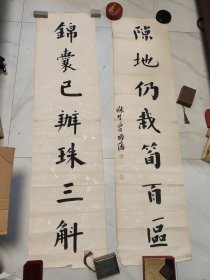 隙地仍栽筍百區
錦囊已辦珠三斛
曾國藩